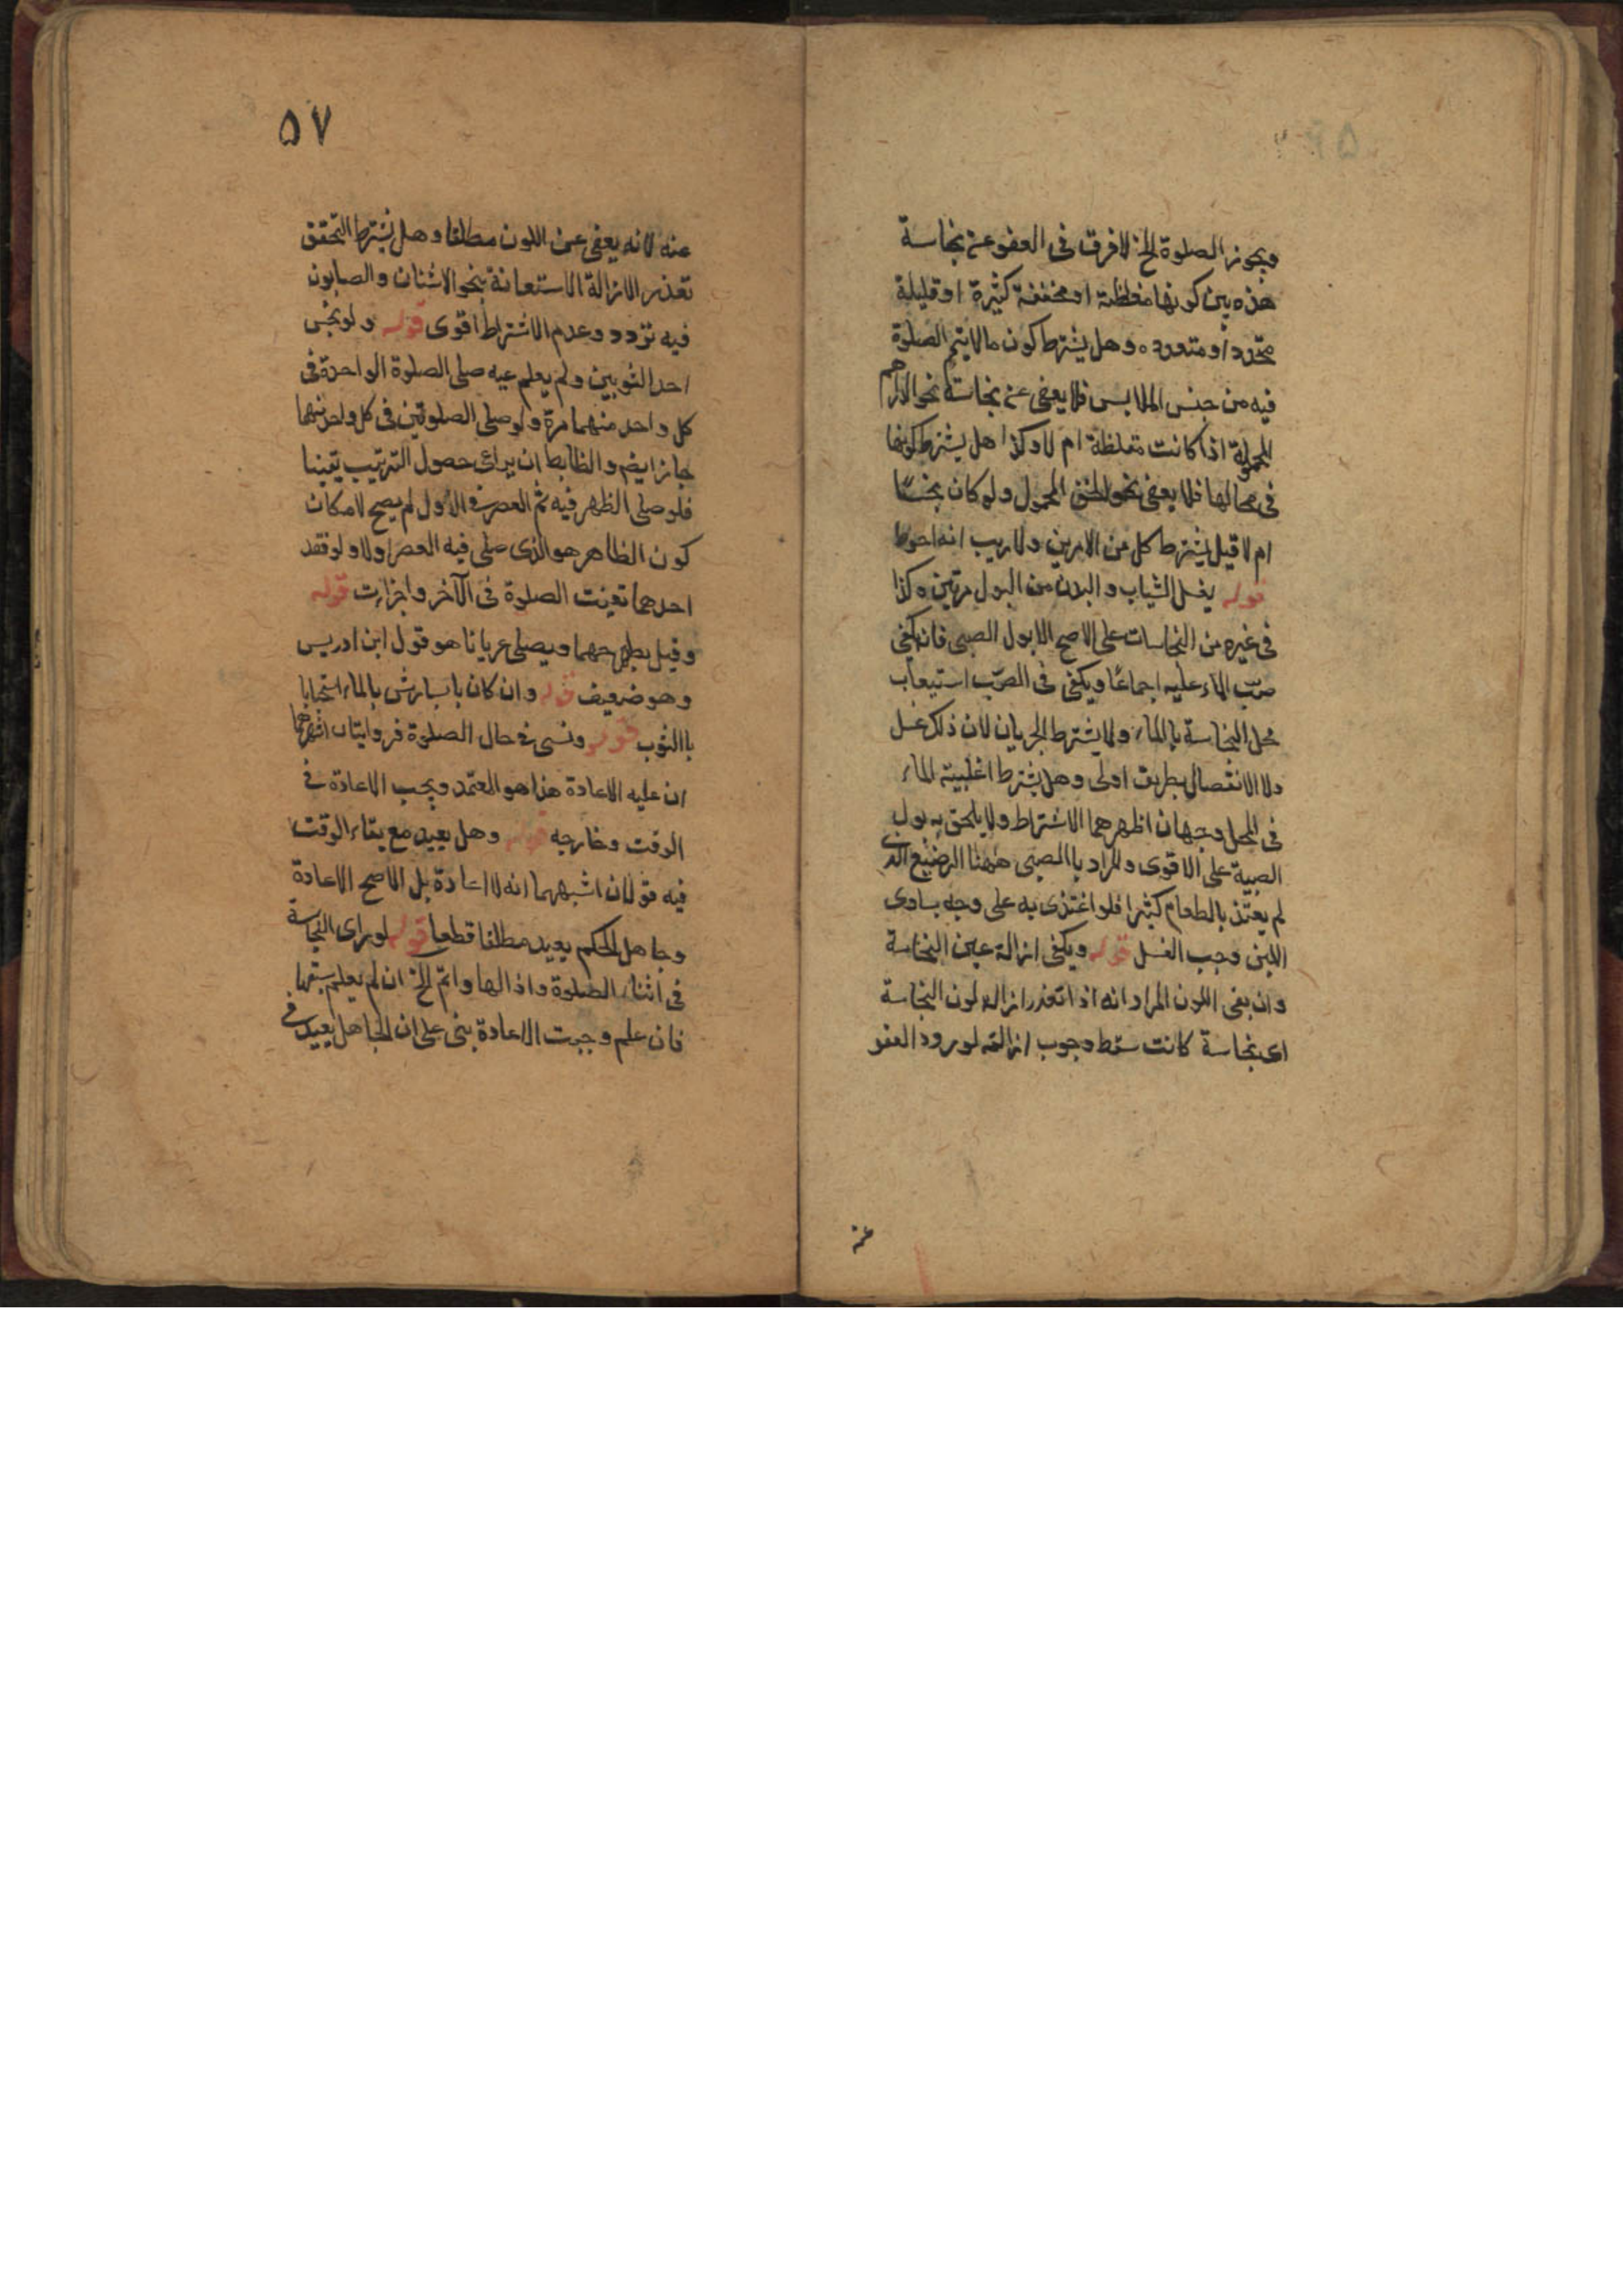 ويجوز الصلوة الخ لا فرق في العفو عن نجاسة
هذه بين كونها مغلظة او مخففة كثيرة او قليلة
متحددا و متعدده وهل يشترط كون ما لا يتم الصلوة
فيه من جنس الملابس فلا يعفى عن نجاسة نحو الدراهم
المحمولة اذا كانت مغلظة ام لا وكذا هل يشترط كونها
في محالها فلا يعفى نحو الخف المحمول ولو كان نجسا
ام لا قيل يشترط كل من الامرين ولا ريب انه احوط
قوله يغسل الثياب والبدن من البول مرتين وكذا
في غيره من النجاسات على الاصح الا بول الصبى فانه يكفى
صب الماء عليه اجماعًا ويكفى فى الصب استيعاب
محل النجاسة بالماء ولا يشترط الجريان لان ذلك غسل
ولا الانفصال بطريق اولى وهل يشترط اغلبية الماء
فى المحل وجهان اظهرهما الاشتراط ولا يلحق به بول
الصبية على الاقوى والمراد با الصبى ههنا الرضيع الذى
لم يغتذ بالطعام كثيرا فلو اغتذى به على وجه يساوى
اللبن وجب الغسل قوله ويكفى ازالة عين النجاسة
وان بقى اللون المراد انه اذا تعذر ازالة لون النجاسة
اى نجاسة كانت سقط وجوب ازالته لورود العفو
عنه
٥٧
عنه لانه يعفى عن اللون مطلقا وهل يشترط التحقق
تعذر الازالة الاستعانة بنحو الاشنان والصابون
فيه تردد وعدم الاشتراط اقوى قوله ولو نجس
احد الثوبين ولم يعلم عيه صلى الصلوة الواحدة فى
كل واحد منهما مرة ولو صلى الصلوتين فى كل واحد منهما
جاز ايضم والظابط ان يراعى حصول الترتيب يقينا
فلو صلى الظهر فيه ثم العصر فى الاول لم يصح لامكان
كون الظاهر هو الذى صلى فيه العصر اولا ولو فقد
احدهما تعينت الصلوة فى الآخر واجزات قوله
وقيل يطرحهما ويصلى عريانا هو قول ابن ادريس
وهو ضعيف قوله وان كان يابسا رش بالماء استحبابا
با الثوب قوله ونسى فى حال الصلوة فروايتان اشهرهما
ان عليه الاعادة هذا هو المعتمد ويجب الاعادة فى
الوقت وخارجه قوله وهل يعيد مع بقاء الوقت
فيه قولان اشبههما انه لا اعادة بل الاصح الاعادة
وجاهل الحكم يعيد مطلقا قطعا قوله لو راى النجاسة
فى اثناء الصلوة واذالها واتم الخ ان لم يعلم سبقها
فان علم وجبت الاعادة بنى على ان الجاهل يعيد فى